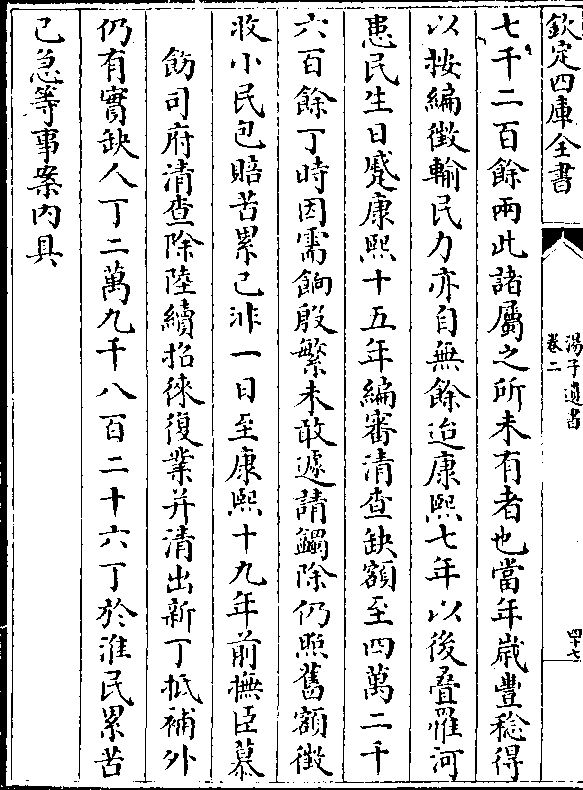 欽定四庫全書
湯子遺書
卷二
四十七
七千二百餘兩此諸屬之所未有者也當年嵗豐稔得
以按編徵輸民力亦自無餘迨康熙七年以後疊罹河
患民生日蹙康熙十五年編審清查缺額至四萬二千
六百餘丁時因需餉殷繁未敢遽請蠲除仍照舊額徵
收小民包賠苦累已非一日至康熙十九年前撫臣慕
飭司府清查除陸續招徠復業并清出新丁抵補外
仍有實缺人丁二萬九千八百二十六丁於淮民累苦
已急等事案内具